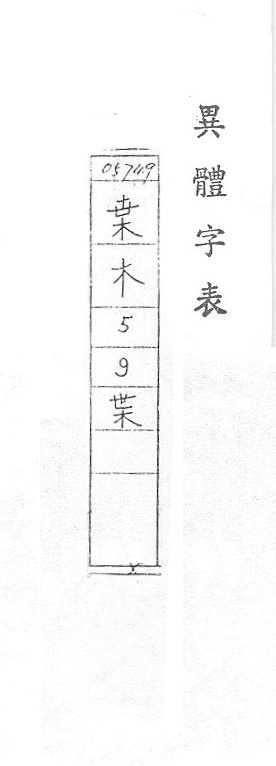 異體字表
05749
枽
木
5
9
枼